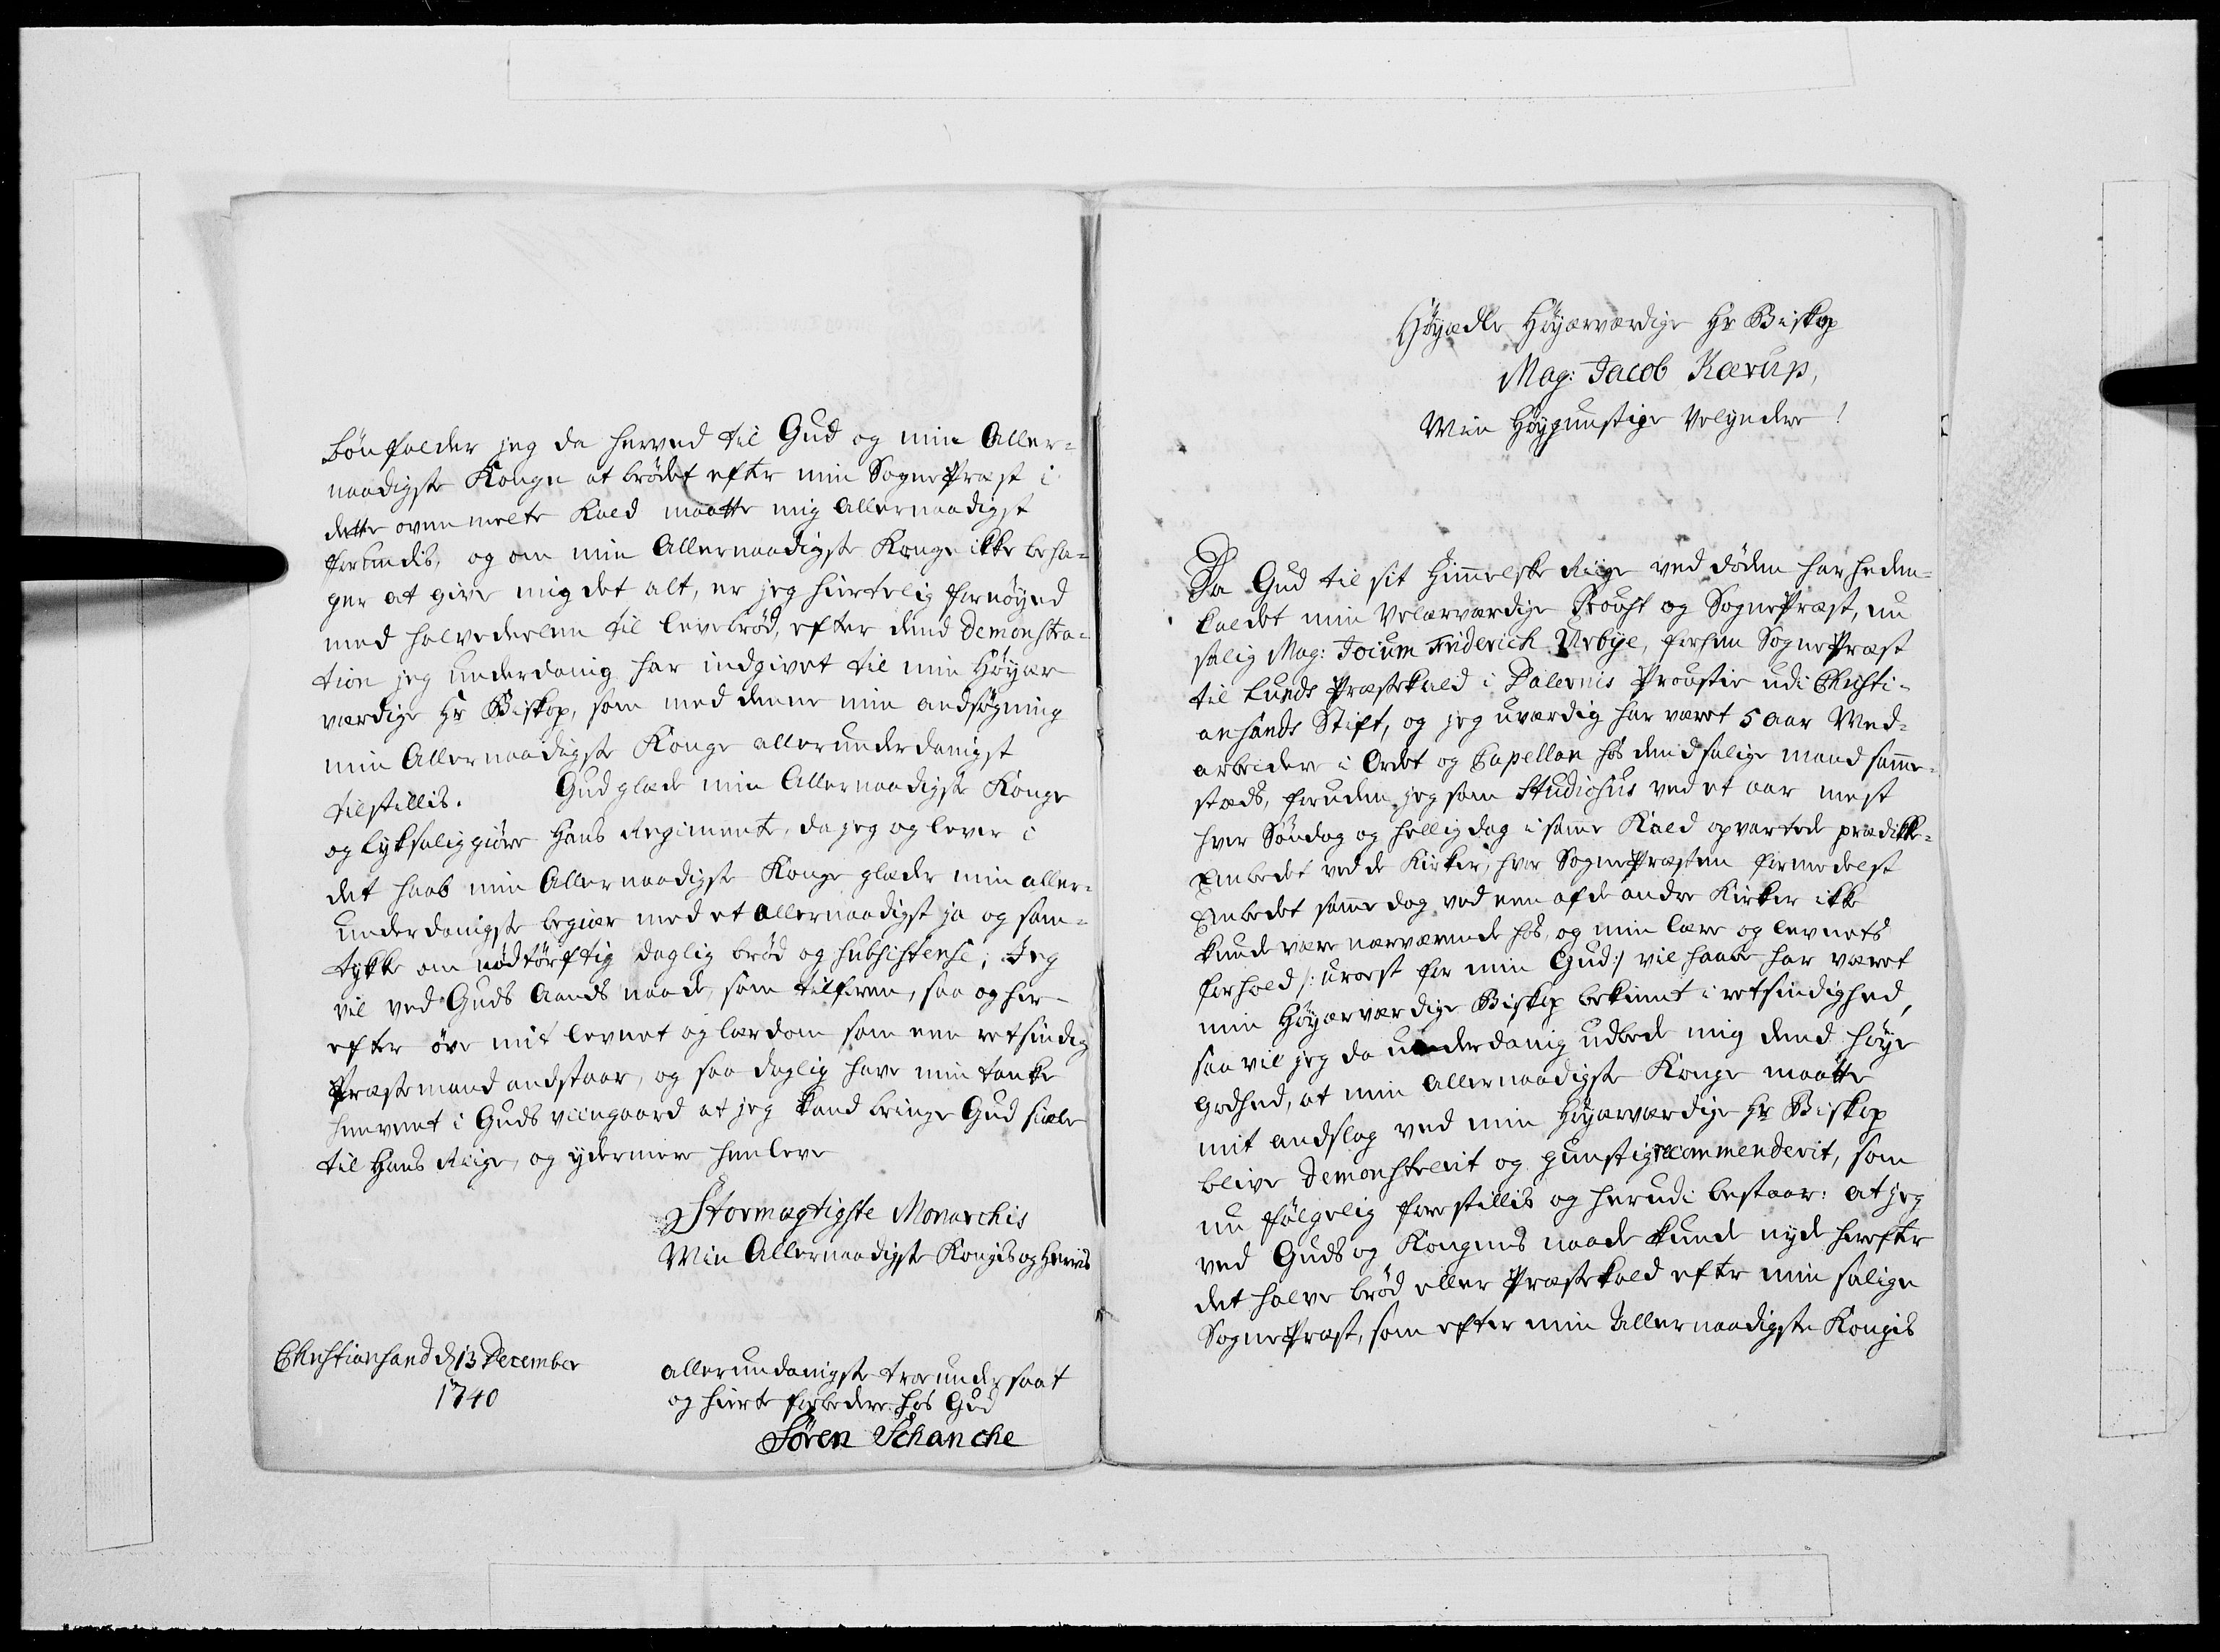 bønfalder jeg da herved til Gud og min Aller=
naadigste Konge at brødet efter min SognePræst i
dette ovenmelte Kald maatte mig Allernaadigst
forundis, og om min Allernaadigste Konge ikke beha=
ger at give mig det alt, er jeg hiertelig fornøyed
med halvedeelen til levebrød, efter dend Demonstra=
tion jeg underdanig har indgivet til min Høyær
værdige Hr Biskop, som med denne min andsøgning
min Allernaadigste Konge allerunderdanigst
tilstillis. Gud glæde min Allernaadigste Konge
og lyksaliggiøre Hans Regimente, da jeg og lever i
det haab min Allernaadigste Konge glæder min aller=
underdanigste begiær med et Allernaadigst ja og sam=
tykke om nødtørftig daglig brød og subsistense; Jeg
vil ved Guds Aands naade, som tilforn, saa og her
efter øve mit levnet og lærdom som een retsindig
Præstemand andstaar, og saa daglig have min tanke
henvent i Guds viingaard at jeg kand bringe Gud siæle
til Hans Riige, og ydermere henleve
Stormægtigste Monarchis
Min Allernaadigste Kongis og Herris
Christiansand d 13 December
1740
allerundanigste troe undersaat
og hierte forbedere hos Gud
Søren Schanche
Høyædle Høyærværdige Hr Biskop
Mag: Jacob Kærup,
Min Høygunstige Velyndere!
Da Gud til sit Himmelske Riige ved døden har heden=
kaldet min Velærværdige Proust og SognePræst, nu
salig Mag: Joium Friderich Urbye, forhen SognePræst
til Lunds Præstekald i Dalernis Proustie udi Christi=
ansands Stift, og jeg uværdig har været 5 aar Med=
arbeidere i Ordet og Capellan hos dend salige mand samme=
stæds, foruden jeg som Studiosus ved et aar mest
hver Søndag og helligdag i samme Kald opvartede prædikke=
Embedet ved de Kirker, hvor SognePræsten formedelst
Embedet samme dag ved een af de andre Kirker ikke
kunde være nærværende hos, og min lære og levnets
forhold /: uroest for min Gud :/ vil haabe har været
min Høyærværdige Biskop bekient i retsindighed,
saa vil jeg da underdanig udbede mig dend høye
godhed, at min Allernaadigste Konge maatte
mit andslag ved min Høyærværdige Hr Biskop
blive Demonstrerit og gunstig recommenderit, som
nu følgelig forestillis og herudi bestaar: at jeg
ved Guds og Kongens naade kunde nyde herefter
det halve brød eller Præstekald efter min salige
SognePræst, som efter min Allernaadigste Kongis